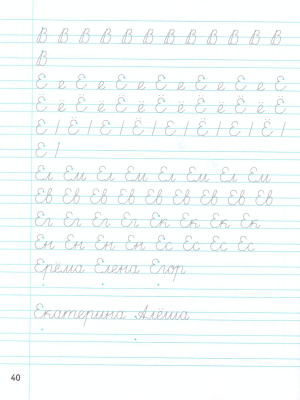 В В В В В В В В В В В В
В
Е е Е е Е е Е е Е е Е е Е
Ё ё Ё ё Ё ё Ё ё Ё ё Ё ё Ё
Е / Ё / Е / Ё / Е / Ё / Е / Ё /
Е /
Ел Ем Ел Ем Ел Ем Ел Ем
Ев Ев Ев Ев Ев Ев Ев Ев Ев
Ег Ег Ег Ег Ек Ек Ек Ек
Ен Ен Ен Ен Ес Ес Ес Ес
Ерёма Елена Егор
Екатерина Алёша
40